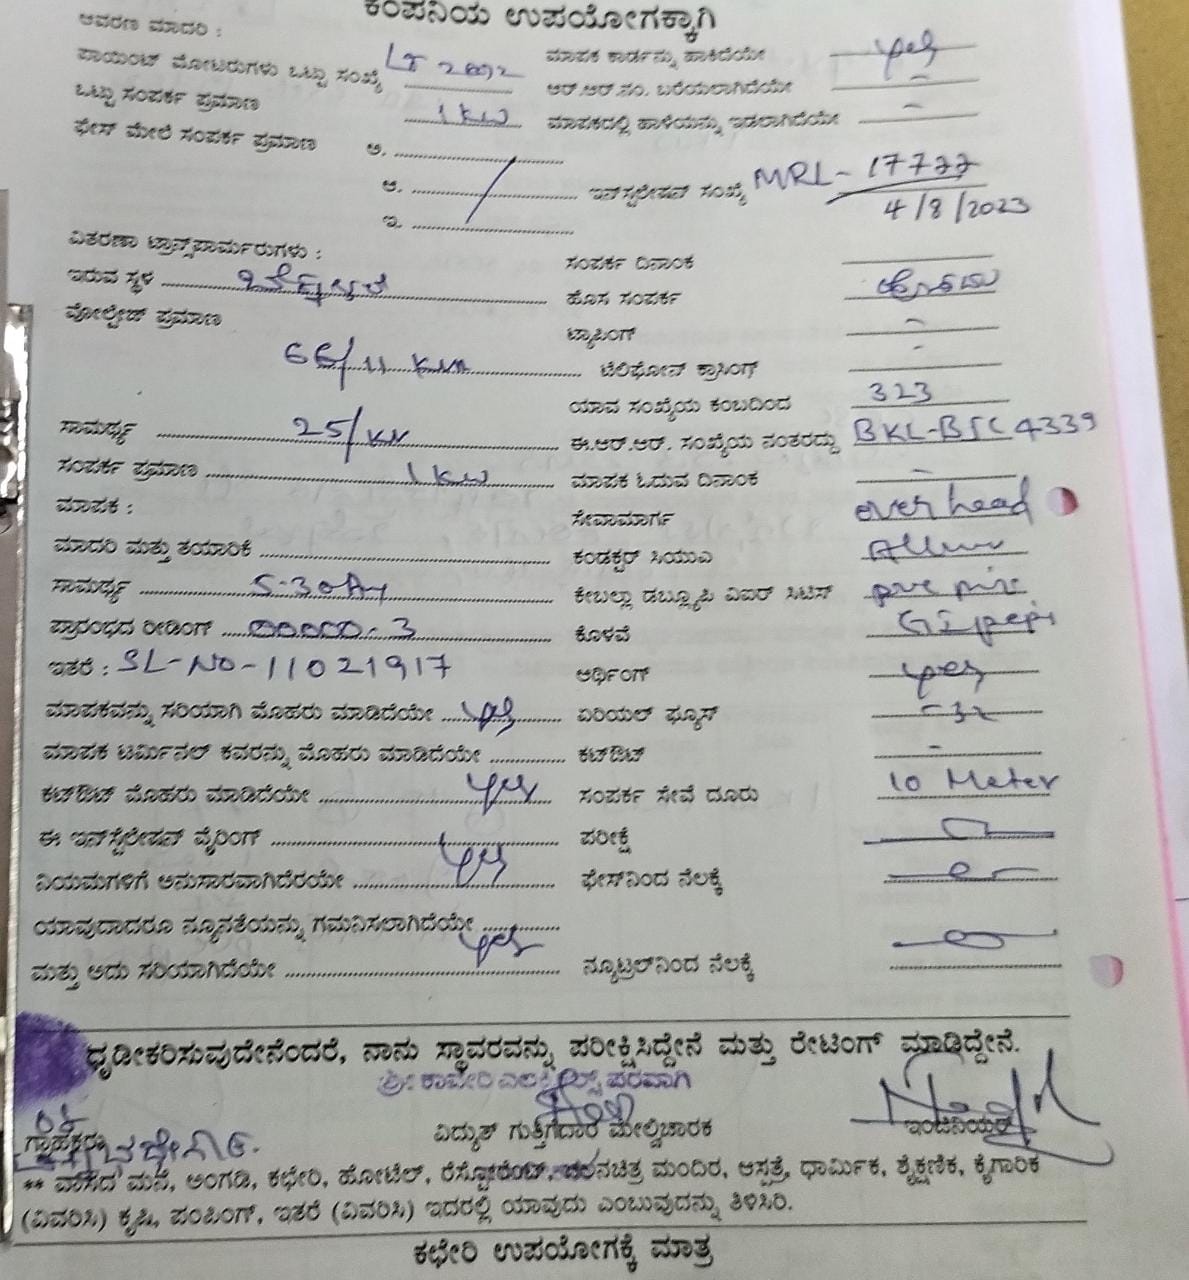 ಕಂಪನಿಯ ಉಪಯೋಗಕ್ಕಾಗಿ
ಆವರಣ ಮಾದರಿ :
ಪಾಯಿಂಟ್ ಮೋಟರುಗಳು ಒಟ್ಟು ಸಂಖ್ಯೆ LT
ಮಾಪಕ ಕಾರ್ಡನ್ನು ಹಾಕಿದೆಯೇ yes
ಒಟ್ಟು ಸಂಪರ್ಕ ಪ್ರಮಾಣ 1 KW
ಆರ್.ಆರ್.ನಂ. ಬರೆಯಲಾಗಿದೆಯೇ -
ಫೇಸ್ ಮೇಲೆ ಸಂಪರ್ಕ ಪ್ರಮಾಣ ಅ.
ಮಾಪಕದಲ್ಲಿ ಹಾಳೆಯನ್ನು ಇಡಲಾಗಿದೆಯೇ -
ಆ.
ಇನ್‌ಸ್ಟಲೇಷನ್ ಸಂಖ್ಯೆ MRL-17727
4/8/2023
ಇ.
ವಿತರಣಾ ಟ್ರಾನ್ಸ್‌ಫಾರ್ಮರುಗಳು :
ಸಂಪರ್ಕ ದಿನಾಂಕ
ಇರುವ ಸ್ಥಳ
ಹೊಸ ಸಂಪರ್ಕ ಹೊಸದು
ವೋಲ್ಟೇಜ್ ಪ್ರಮಾಣ
ಟ್ಯಾಪಿಂಗ್ -
66/11
ಟೆಲಿಫೋನ್ ಕ್ರಾಸಿಂಗ್ -
ಯಾವ ಸಂಖ್ಯೆಯ ಕಂಬದಿಂದ 323
ಸಾಮರ್ಥ್ಯ 25/
ಈ.ಆರ್.ಆರ್. ಸಂಖ್ಯೆಯ ನಂತರದ್ದು BKL-BJC 4339
ಸಂಪರ್ಕ ಪ್ರಮಾಣ 1 KW
ಮಾಪಕ ಓದುವ ದಿನಾಂಕ -
ಮಾಪಕ :
ಸೇವಾಮಾರ್ಗ over head
ಮಾದರಿ ಮತ್ತು ತಯಾರಿಕೆ
ಕಂಡಕ್ಟರ್ ಸಿಯುಎ
ಸಾಮರ್ಥ್ಯ 5-30A
ಕೇಬಲ್ಲಾ ಡಬ್ಲ್ಯೂಪಿ ವಿಐರ್ ಸಿಟಿಸ್
ಪ್ರಾರಂಭದ ರೀಡಿಂಗ್ 00000-3
ಕೊಳವೆ GI
ಇತರೆ : SL-NO-11021917
ಅರ್ಥಿಂಗ್ yes
ಮಾಪಕವನ್ನು ಸರಿಯಾಗಿ ಮೊಹರು ಮಾಡಿದೆಯೇ yes
ಏರಿಯಲ್ ಫ್ಯೂಸ್
ಮಾಪಕ ಟರ್ಮಿನಲ್ ಕವರನ್ನು ಮೊಹರು ಮಾಡಿದೆಯೇ
ಕಟ್‌ಔಟ್ -
ಕಟ್‌ಔಟ್ ಮೊಹರು ಮಾಡಿದೆಯೇ yes
ಸಂಪರ್ಕ ಸೇವೆ ದೂರು 10 Meter
ಈ ಇನ್‌ಸ್ಟಲೇಷನ್ ವೈರಿಂಗ್
ಪರೀಕ್ಷೆ
ನಿಯಮಗಳಿಗೆ ಅನುಸಾರವಾಗಿದೆರಯೇ yes
ಫೇಸ್‌ನಿಂದ ನೆಲಕ್ಕೆ
ಯಾವುದಾದರೂ ನ್ಯೂನತೆಯನ್ನು ಗಮನಿಸಲಾಗಿದೆಯೇ
ಮತ್ತು ಅದು ಸರಿಯಾಗಿದೆಯೇ yes
ನ್ಯೂಟ್ರಲ್‌ನಿಂದ ನೆಲಕ್ಕೆ
ಧೃಡೀಕರಿಸುವುದೇನೆಂದರೆ, ನಾನು ಸ್ಥಾವರವನ್ನು ಪರೀಕ್ಷಿಸಿದ್ದೇನೆ ಮತ್ತು ರೇಟಿಂಗ್ ಮಾಡಿದ್ದೇನೆ.
ಶ್ರೀ ಕಾವೇರಿ ಎಲೆಕ್ಟ್ರಿಕಲ್ಸ್ ಪರವಾಗಿ
ಗ್ರಾಹಕರು
ವಿದ್ಯುತ್ ಗುತ್ತಿಗೆದಾರ ಮೇಲ್ವಿಚಾರಕ
ಇಂಜಿನಿಯರ್
** ವಾಸದ ಮನೆ, ಅಂಗಡಿ, ಕಛೇರಿ, ಹೋಟೆಲ್, ರೆಸ್ಟೋರೆಂಟ್, ಚಲನಚಿತ್ರ ಮಂದಿರ, ಆಸ್ಪತ್ರೆ, ಧಾರ್ಮಿಕ, ಶೈಕ್ಷಣಿಕ, ಕೈಗಾರಿಕ
(ವಿವರಿಸಿ) ಕೃಷಿ, ಪಂಪಿಂಗ್, ಇತರೆ (ವಿವರಿಸಿ) ಇದರಲ್ಲಿ ಯಾವುದು ಎಂಬುವುದನ್ನು ತಿಳಿಸಿರಿ.
ಕಛೇರಿ ಉಪಯೋಗಕ್ಕೆ ಮಾತ್ರ